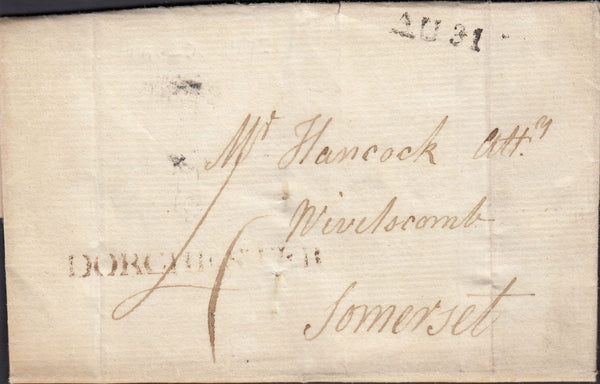 AU 31
Mr Hancock Atty
Wivelscomb
DORCHESTER
Somerset